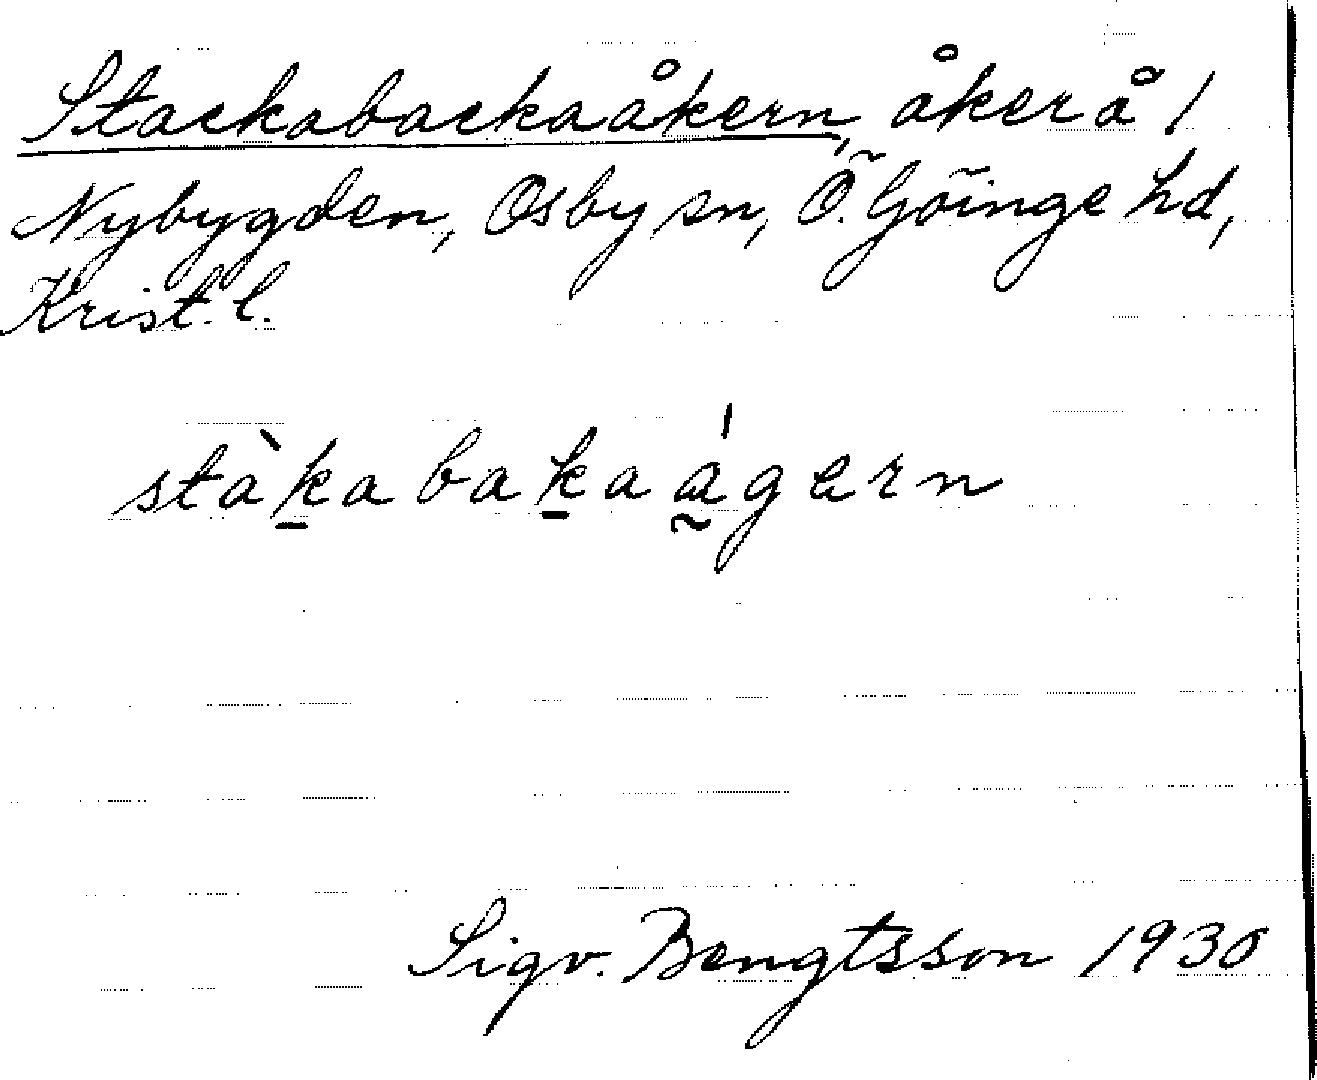 Stackabackaåkern, åker å 1
Nybygden, Osby sn, Ö. Göinge hd,
Krist. l.
stàka baka ágern
Sigv. Bengtsson 1930